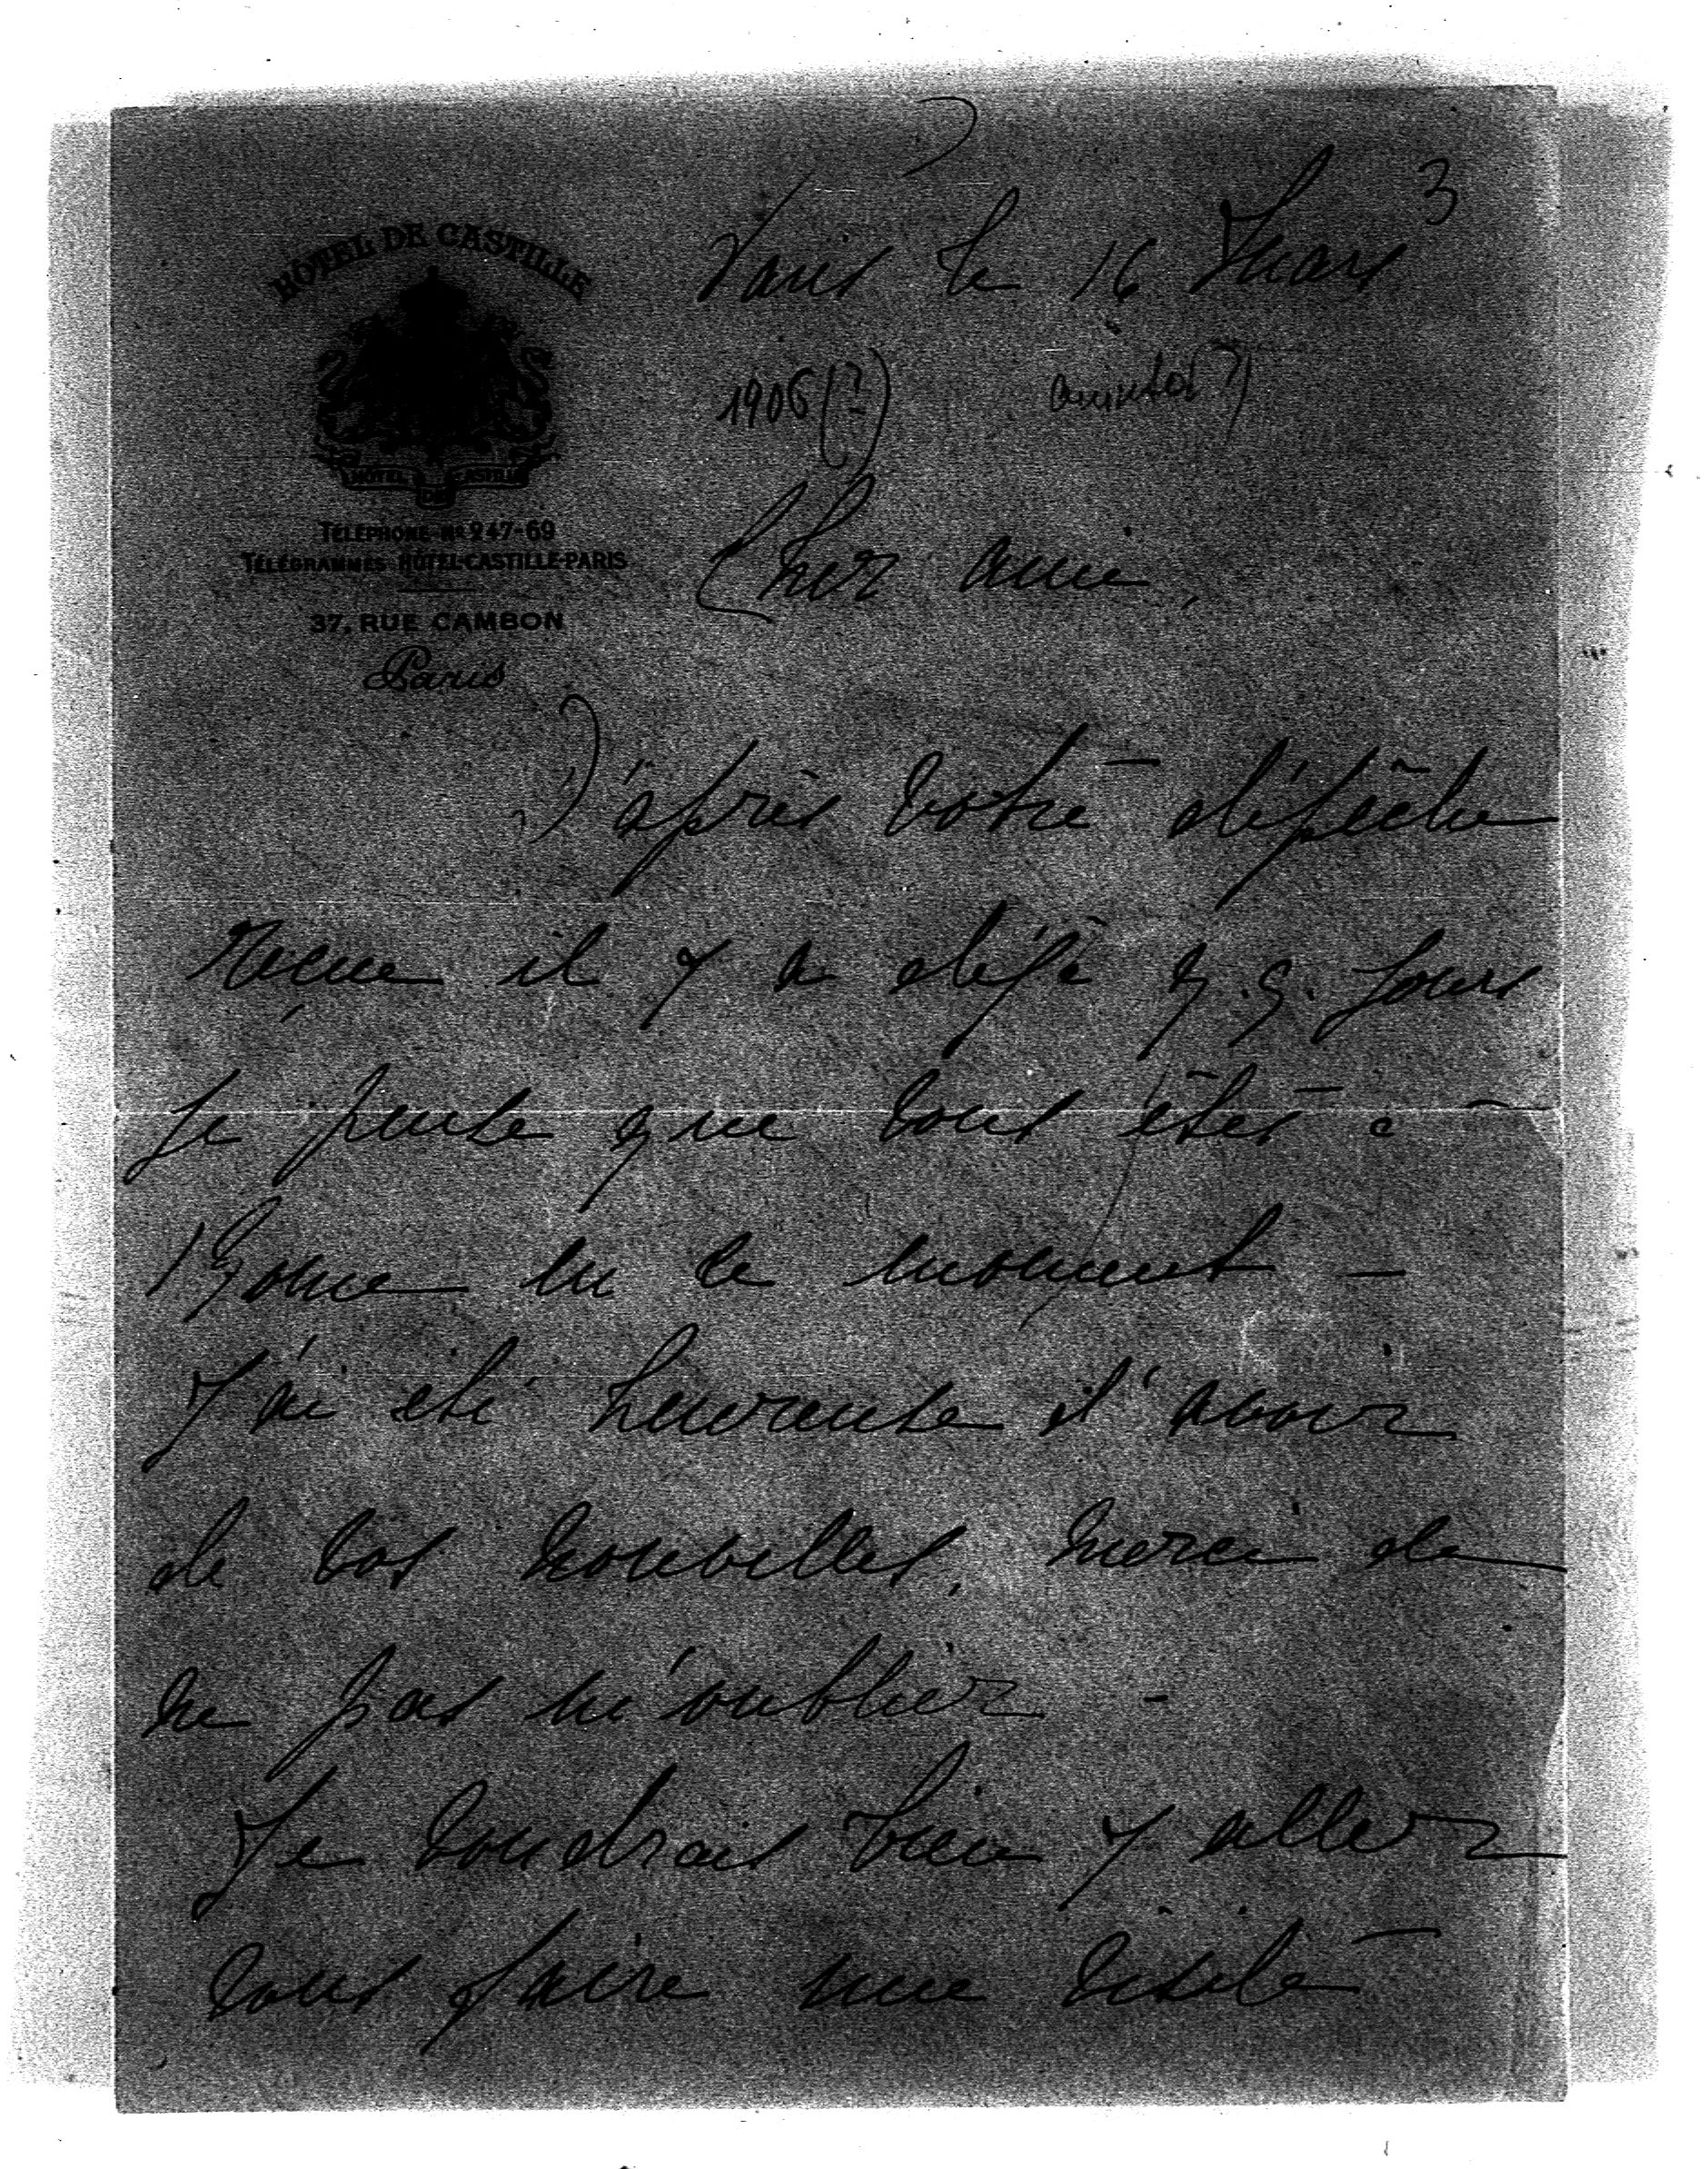 3
HÔTEL DE CASTILLE
Paris le 16 Mars
1906 (?)
HÔTEL DE CASTILLE
TÉLÉPHONE Nº 247-69
TÉLÉGRAMMES HÔTEL-CASTILLE-PARIS
37, RUE CAMBON
Paris
Cher ami,
D'après votre dépêche
reçue il y a déjà q.q. jours
je pense que vous êtes à
Rome en ce moment –
J'ai été heureuse d'avoir
de vos nouvelles, merci de
ne pas m'oublier –
Je voudrais bien y aller
vous faire une visite